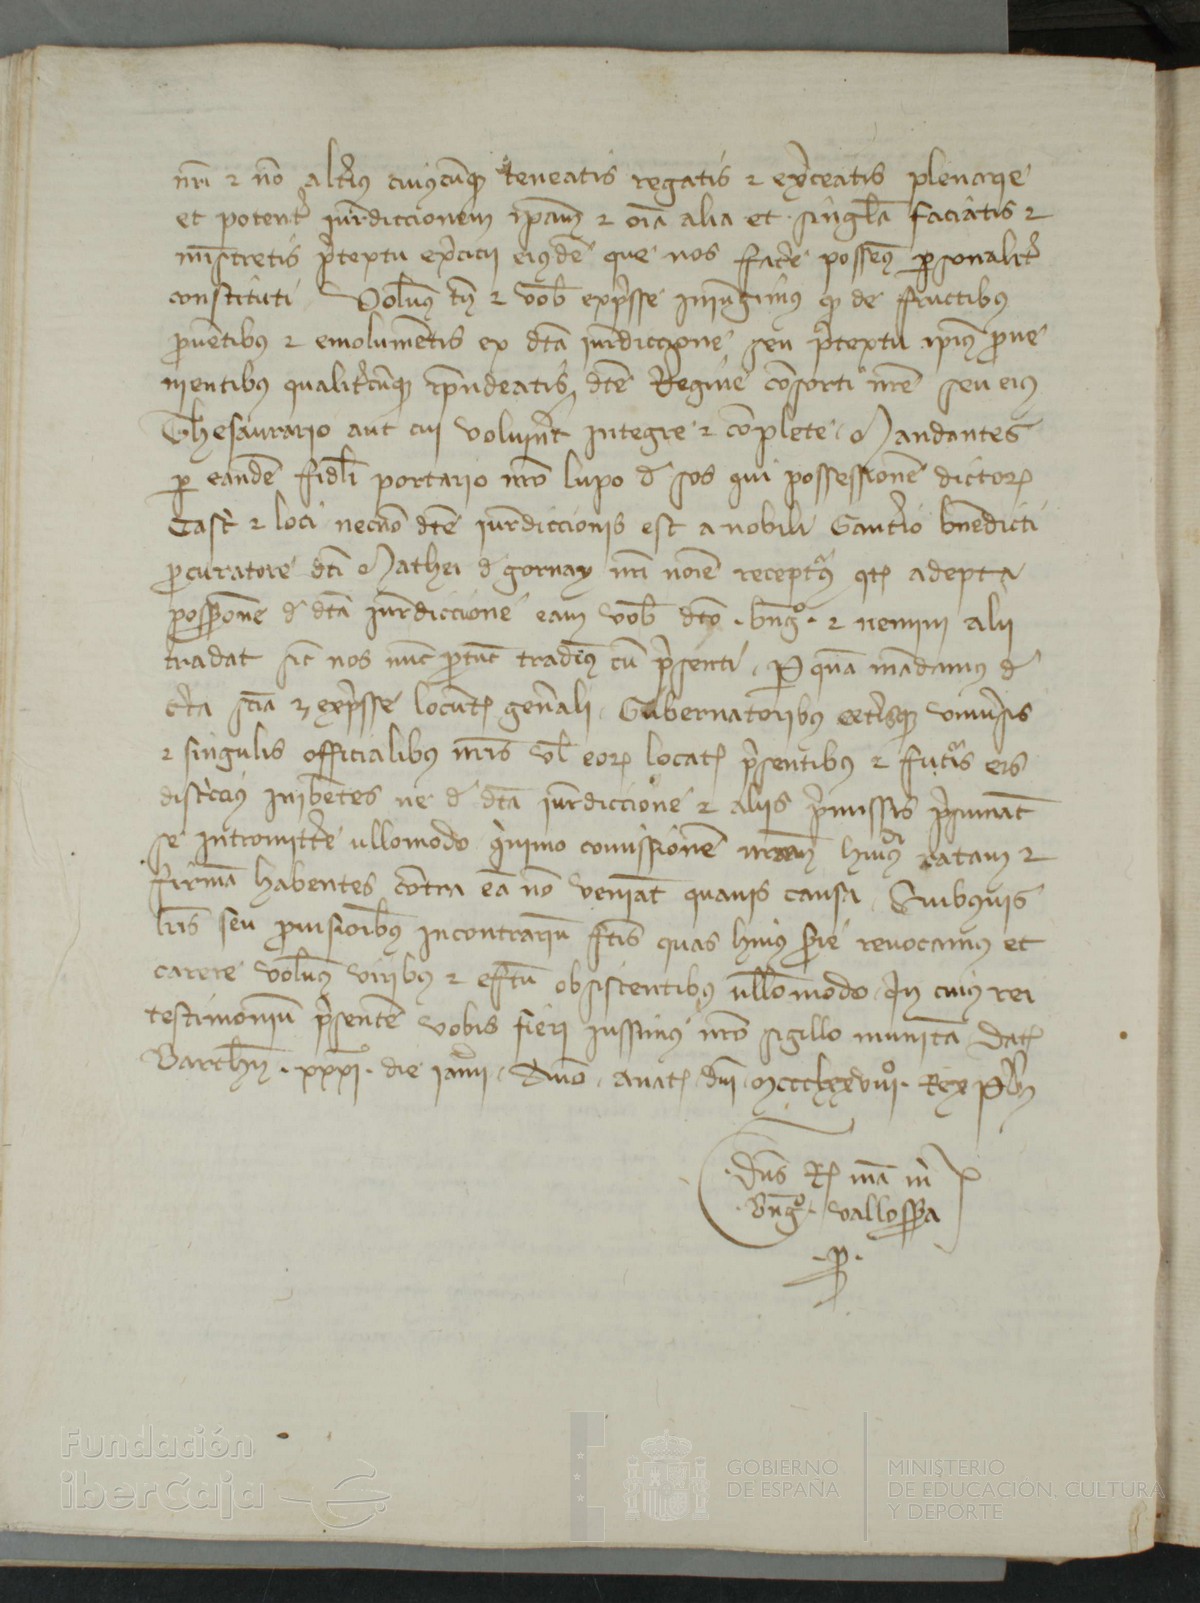 nri 2 no altius cuiuscuq teneatis regatis 2 exceatis plenarie
et potent iurdiccionem ipam 2 oia alia et singla faciatis 2
mistretis ptextu excicii eiusde que nos facere possem psonalit
constituti Volum tn 2 vob expsse iniungimus q de fructibus
puetibus 2 emolumetis ex dta iurdiccione seu ptextu ipius prove
nientibus qualitcuq rpndeatis dte Regine consorti nre seu eius
Thesaurario aut cui voluint integre 2 complete Mandantes
p eande fidli portario nro lupo d sos qui possessione dictor
Cast 2 loci necno dte iurdiccionis est a nobili Gantio bndicti
pcuratore dti Mathei d gornay nri noie recept qt adepta
possione d dta iurdiccione eam vob dto bngo 2 nemini alii
tradat sic nos nuc ptuc tradim cu psenti P qua madamus d
cta scia 2 expsse locut gnali Gubernatoribus cetisq univsis
2 singulis officialibus nris vl eor locat psentibus 2 futis eis
districius inibetes ne d dta iurdiccione 2 aliis pmissis psumat
se intromitte ullomodo quimo comissione nram huius di ratam 2
firma habentes contra ea no veniat quavis causa Quibusvis
lris seu pvisioibus incontrariu fctis quas huius sie revocamus et
carere volum viribus 2 effctu obsistentibus ullomodo In cuius rei
testimoniu psente vobis fieri iussimus nro sigillo munita Dat
Barchn xxxi die ianuii Anno anat dni mccclxxviiio Rex P
Dns R ma m
Bngo vallossa
p
Fundación
iberCaja
GOBIERNO
DE ESPAÑA
MINISTERIO
DE EDUCACIÓN, CULTURA
Y DEPORTE